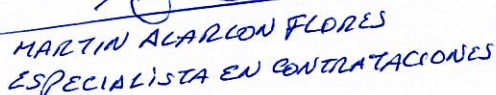 MARTIN ALARCON FLORES
ESPECIALISTA EN CONTRATACIONES